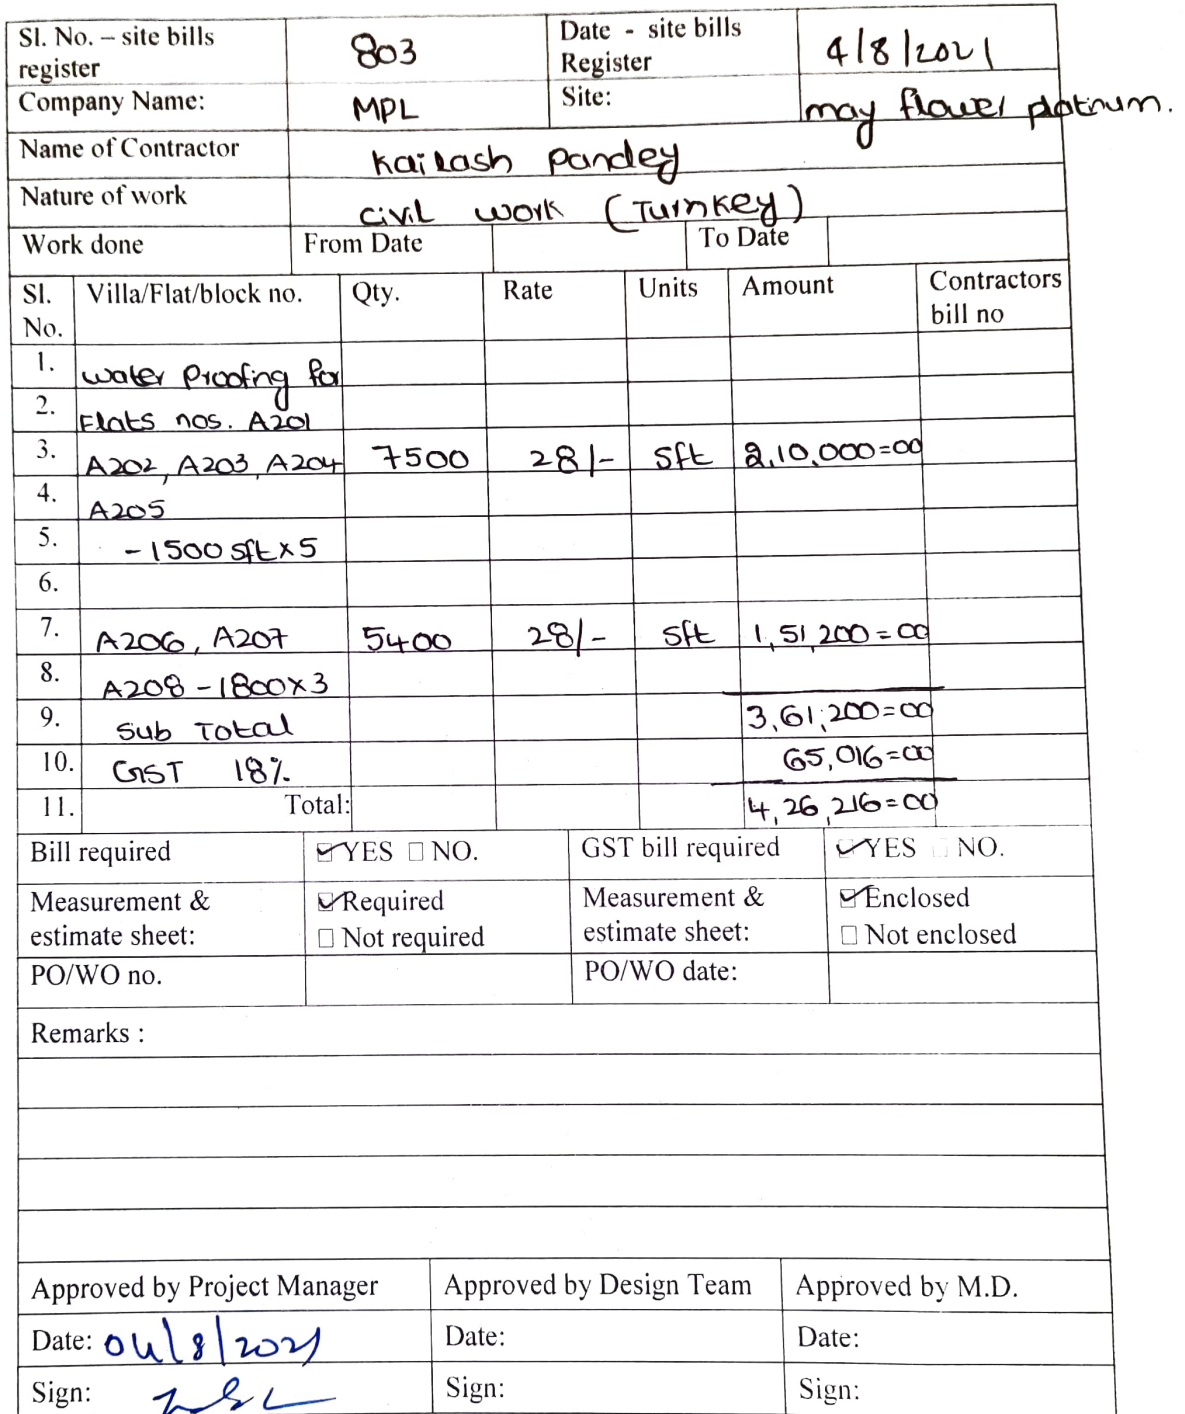 Sl. No. – site bills register 803 Date - site bills Register 4/8/2021
Company Name: MPL Site: may flower platinum.
Name of Contractor Kailash Pandey
Nature of work Civil work (Turnkey)
Work done From Date To Date
Sl. No. Villa/Flat/block no. Qty. Rate Units Amount Contractors bill no
1. water Proofing for
2. Flats nos. A201
3. A202, A203, A204 7500 28/- Sft 2,10,000=00
4. A205
5. - 1500 sft x 5
6.
7. A206, A207 5400 28/- Sft 1,51,200=00
8. A208 - 1800x3
9. Sub Total 3,61,200=00
10. GST 18% 65,016=00
11. Total: 4,26,216=00
Bill required YES NO. GST bill required YES NO.
Measurement & estimate sheet: Required Not required Measurement & estimate sheet: Enclosed Not enclosed
PO/WO no. PO/WO date:
Remarks :
Approved by Project Manager Approved by Design Team Approved by M.D.
Date: 04/8/2021 Date: Date:
Sign: Sign: Sign: